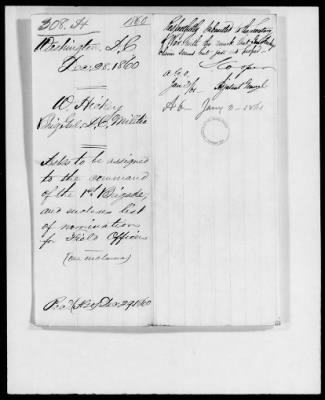 308. H 1860
Washington, D.C
Dec. 28. 1860
W Hickey
Brig Genl D.C. Militia
Asks to be assigned
to the command
of the 1st Brigade,
and encloses list
of nominations
for Field Officers
(one enclosure)
Rec'd (A.G.O.) Dec. 29. 1860
Respectfully submitted to the Secretary
of War with the remark that
S. Cooper
A.G.O. Adjutant General
Jan 2/61.
Jany 2 - 1861